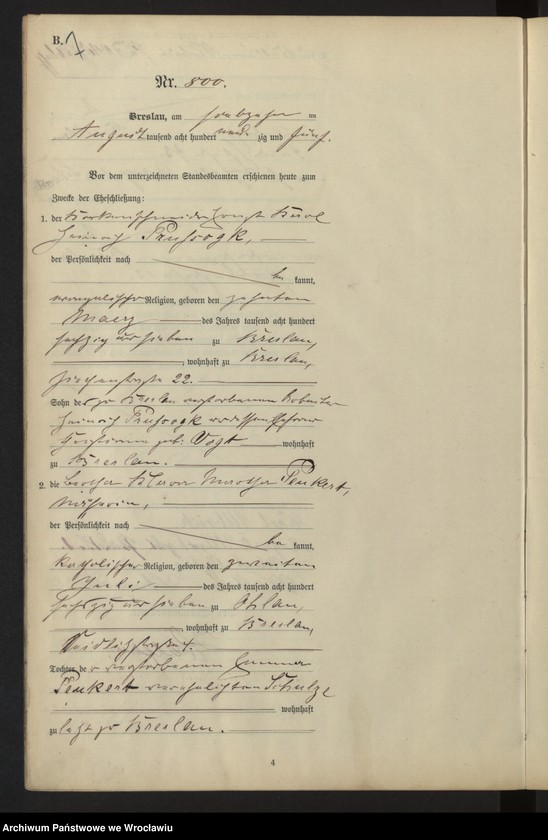 B.
Nr. 800.
Breslau, am siebzehnten
August tausend acht hundert neunzig und fünf.
Vor dem unterzeichneten Standesbeamten erschienen heute zum
Zwecke der Eheschließung:
1. der Korkenschneider Ernst Karl
Heinrich
der Persönlichkeit nach
be kannt,
evangelischer Religion, geboren den zehnten
Maerz des Jahres tausend acht hundert
sechzig und sieben zu Breslau,
, wohnhaft zu Breslau,
22.
Sohn des zu Breslau verstorbenen Arbeiter
Heinrich
geb. Vogt wohnhaft
zu Breslau.
2. die Bertha Klara Martha Peukert,
Näherin,
der Persönlichkeit nach
be kannt,
katholischer Religion, geboren den zweiten
Juli des Jahres tausend acht hundert
sechszig und sieben zu Ohlau,
, wohnhaft zu Breslau,
4.
Tochter der verstorbenen Emma
Peukert verehelichten Schulze
wohnhaft
zuletzt zu Breslau.
4
Archiwum Państwowe we Wrocławiu